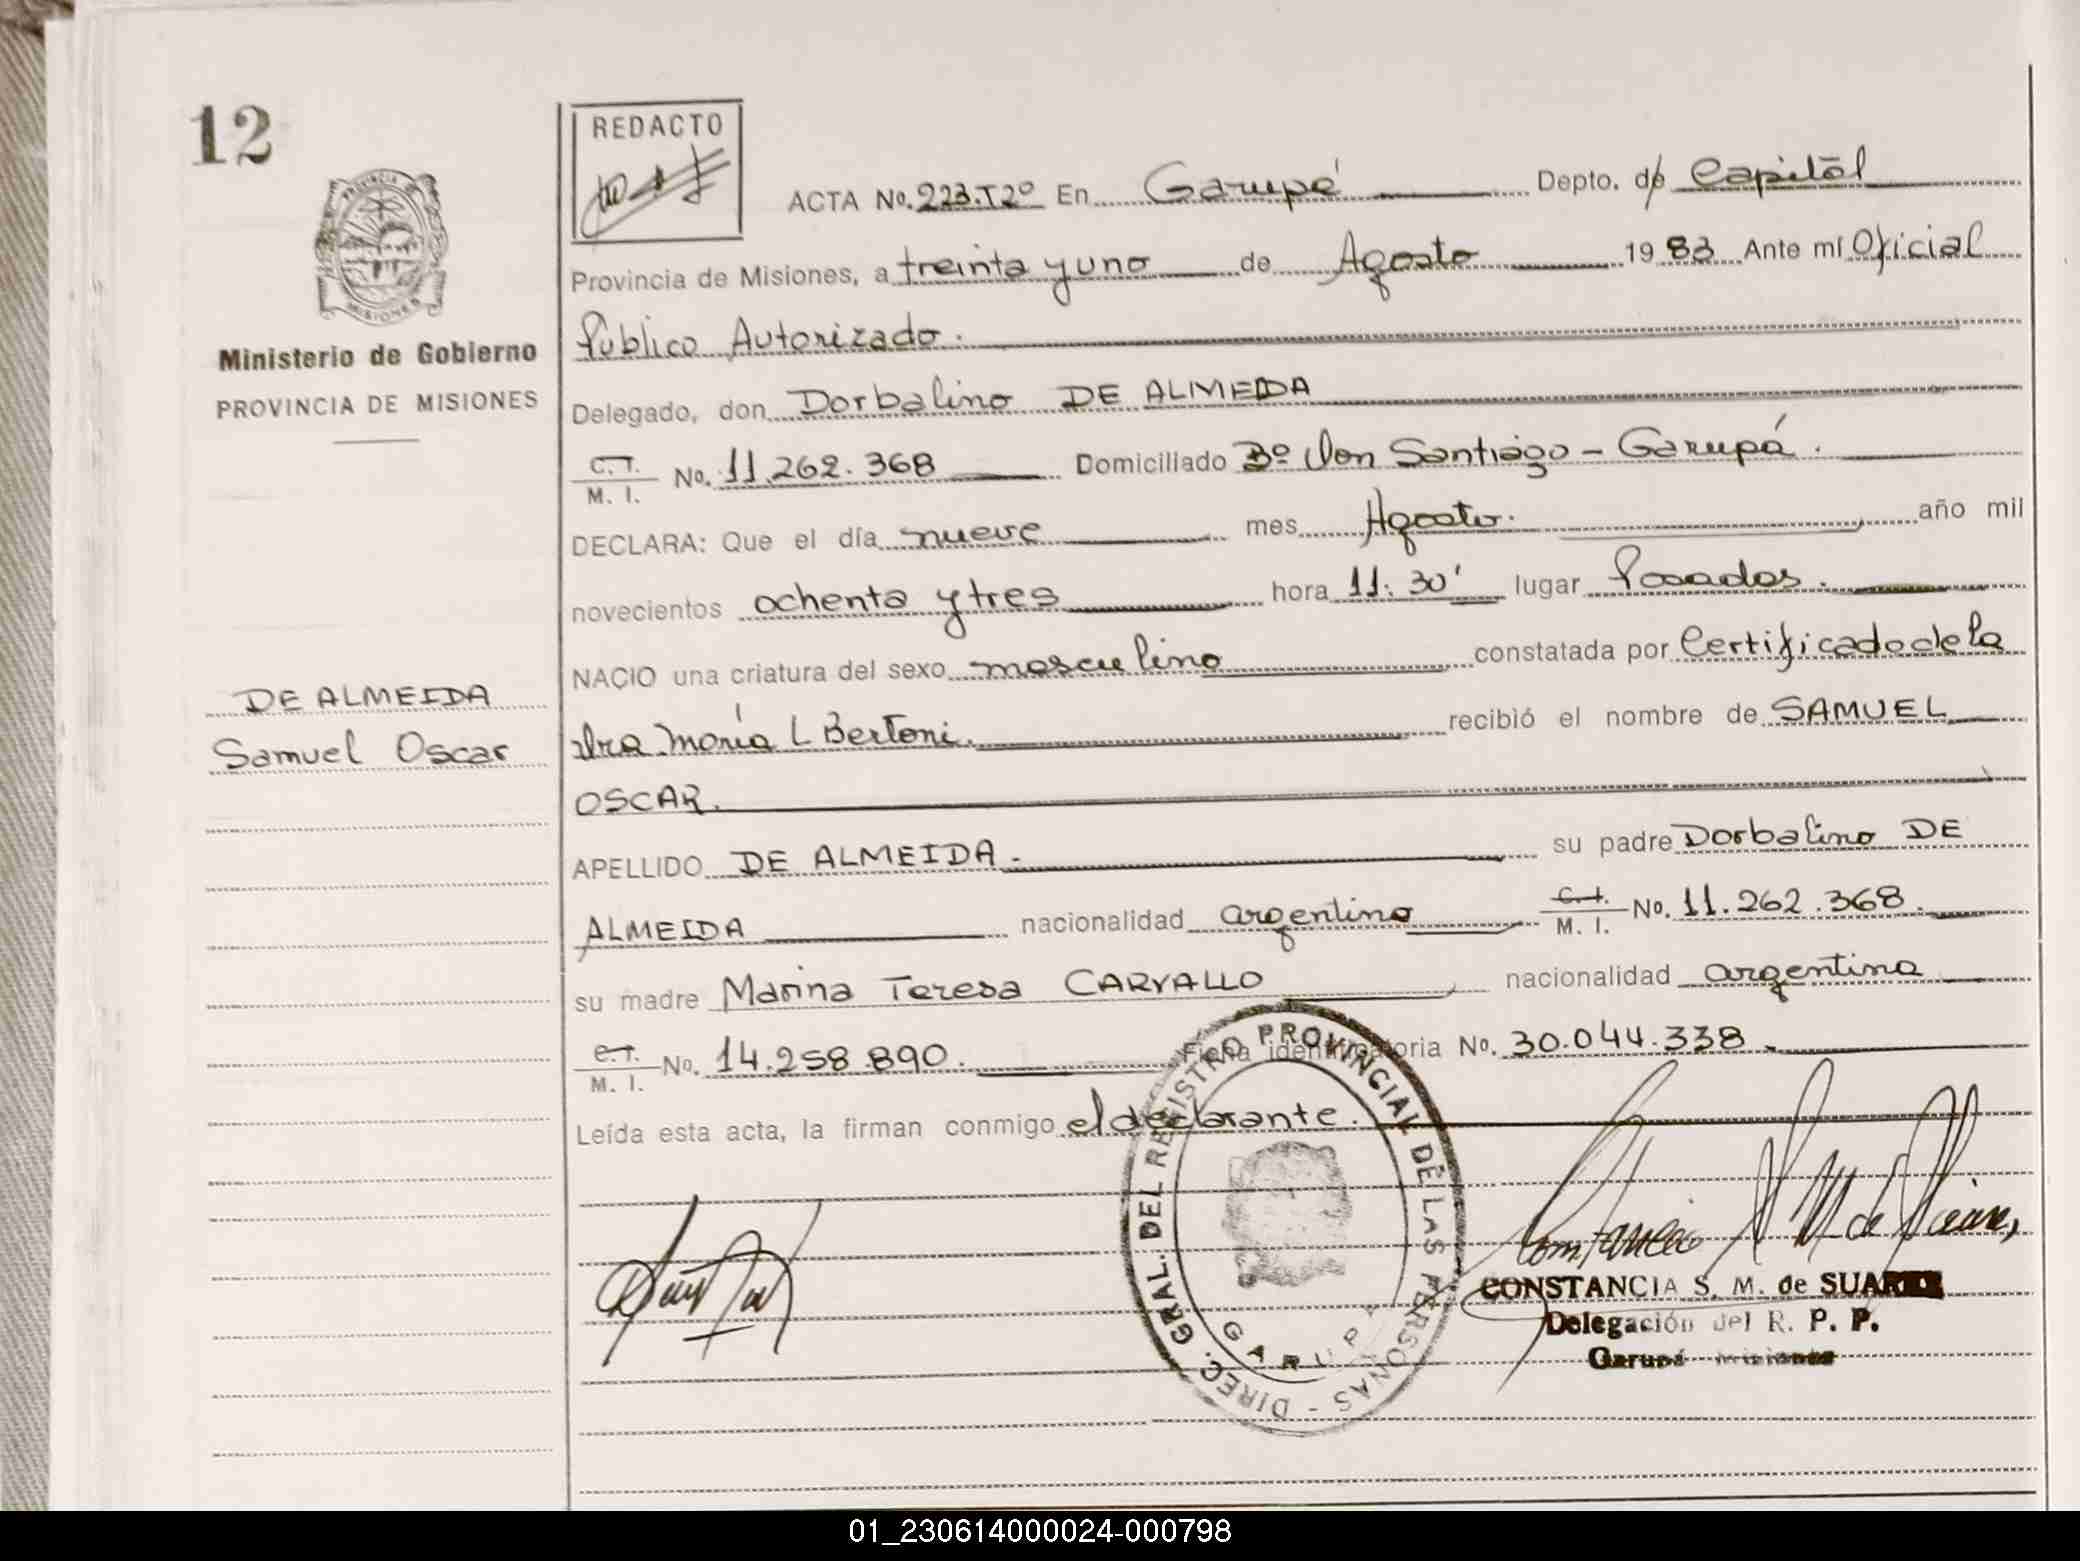 12
REDACTO
ACTA No. 223.T2º En Garupá Depto. de Capitál
PROVINCIA DE
MISIONES
Ministerio de Gobierno
PROVINCIA DE MISIONES
Provincia de Misiones, a treinta y uno de Agosto 1983 Ante mí Oficial
Público Autorizado.
Delegado, don Dorbalino DE ALMEIDA
C.I.
M. I. No. 11.262.368 Domiciliado Bº Don Santiago - Garupá.
DECLARA: Que el día nueve mes Agosto. año mil
novecientos ochenta y tres hora 11:30' lugar Posadas.
NACIO una criatura del sexo masculino constatada por Certificado de la
DE ALMEIDA
Samuel Oscar
Dra María L Bertoni. recibió el nombre de SAMUEL
OSCAR.
APELLIDO DE ALMEIDA. su padre Dorbalino DE
ALMEIDA nacionalidad argentino C.I.
M. I. No. 11.262.368.
su madre Marina Teresa CARVALLO nacionalidad argentina
C.I.
M. I. No. 14.258.890. Ficha identificatoria No. 30.044.338
Leída esta acta, la firman conmigo el declarante.
DIREC. GRAL. DEL REGISTRO PROVINCIAL DE LAS PERSONAS -
GARUPA
CONSTANCIA S. M. de SUAREZ
Delegación del R. P. P.
Garupá Misiones
01_230614000024-000798